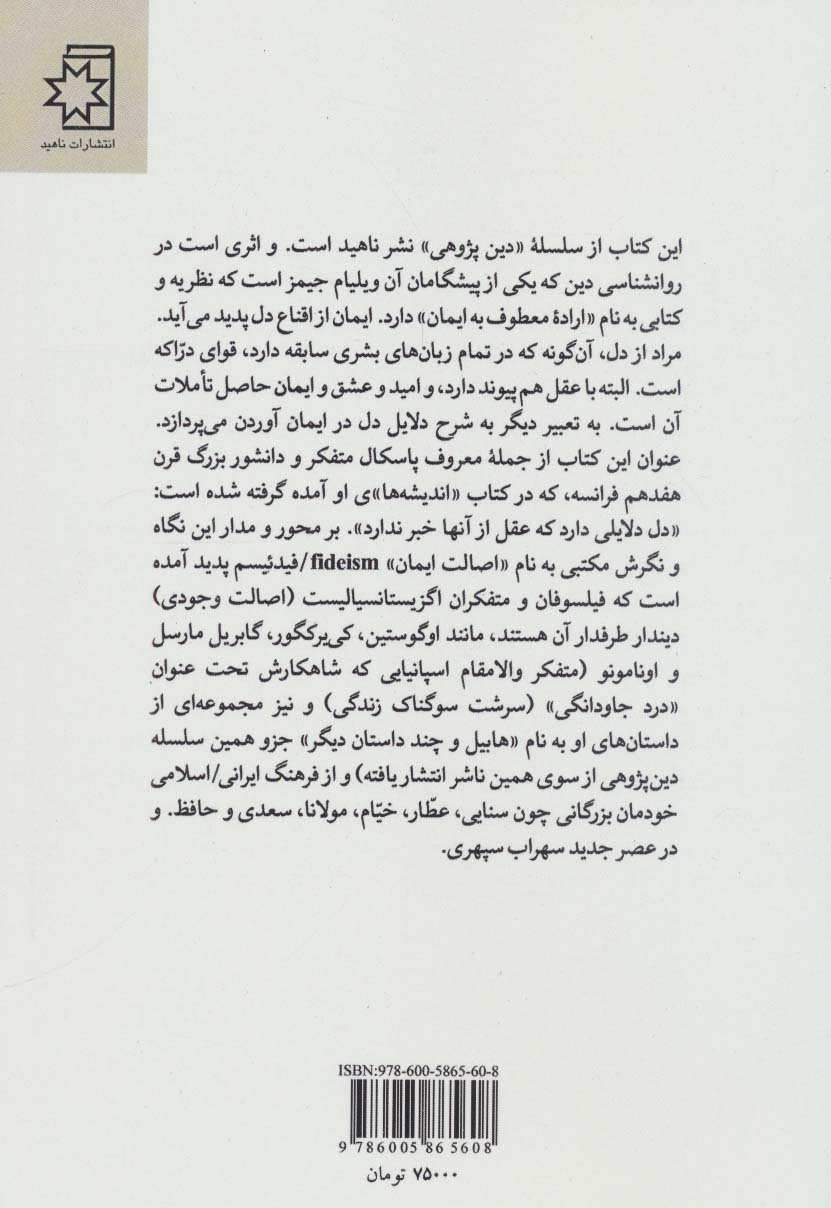 انتشارات ناهید
این کتاب از سلسلهٔ «دین پژوهی» نشر ناهید است. و اثری است در
روانشناسی دین که یکی از پیشگامان آن ویلیام جیمز است که نظریه و
کتابی به نام «ارادهٔ معطوف به ایمان» دارد. ایمان از اقناع دل پدید می‌آید.
مراد از دل، آن‌گونه که در تمام زبان‌های بشری سابقه دارد، قوای درّاکه
است. البته با عقل هم پیوند دارد، و امید و عشق و ایمان حاصل تأملات
آن است. به تعبیر دیگر به شرح دلایل دل در ایمان آوردن می‌پردازد.
عنوان این کتاب از جملهٔ معروف پاسکال متفکر و دانشور بزرگ قرن
هفدهم فرانسه، که در کتاب «اندیشه‌ها»ی او آمده گرفته شده است:
«دل دلایلی دارد که عقل از آنها خبر ندارد». بر محور و مدار این نگاه
و نگرش مکتبی به نام «اصالت ایمان» fideism/فیدئیسم پدید آمده
است که فیلسوفان و متفکران اگزیستانسیالیست (اصالت وجودی)
دیندار طرفدار آن هستند، مانند اوگوستین، کی‌یرکگور، گابریل مارسل
و اونامونو (متفکر والامقام اسپانیایی که شاهکارش تحت عنوان
«درد جاودانگی» (سرشت سوگناک زندگی) و نیز مجموعه‌ای از
داستان‌های او به نام «هابیل و چند داستان دیگر» جزو همین سلسله
دین‌پژوهی از سوی همین ناشر انتشار یافته) و از فرهنگ ایرانی/اسلامی
خودمان بزرگانی چون سنایی، عطّار، خیّام، مولانا، سعدی و حافظ. و
در عصر جدید سهراب سپهری.
ISBN:978-600-5865-60-8
9 786005 865608
۷۵۰۰۰ تومان